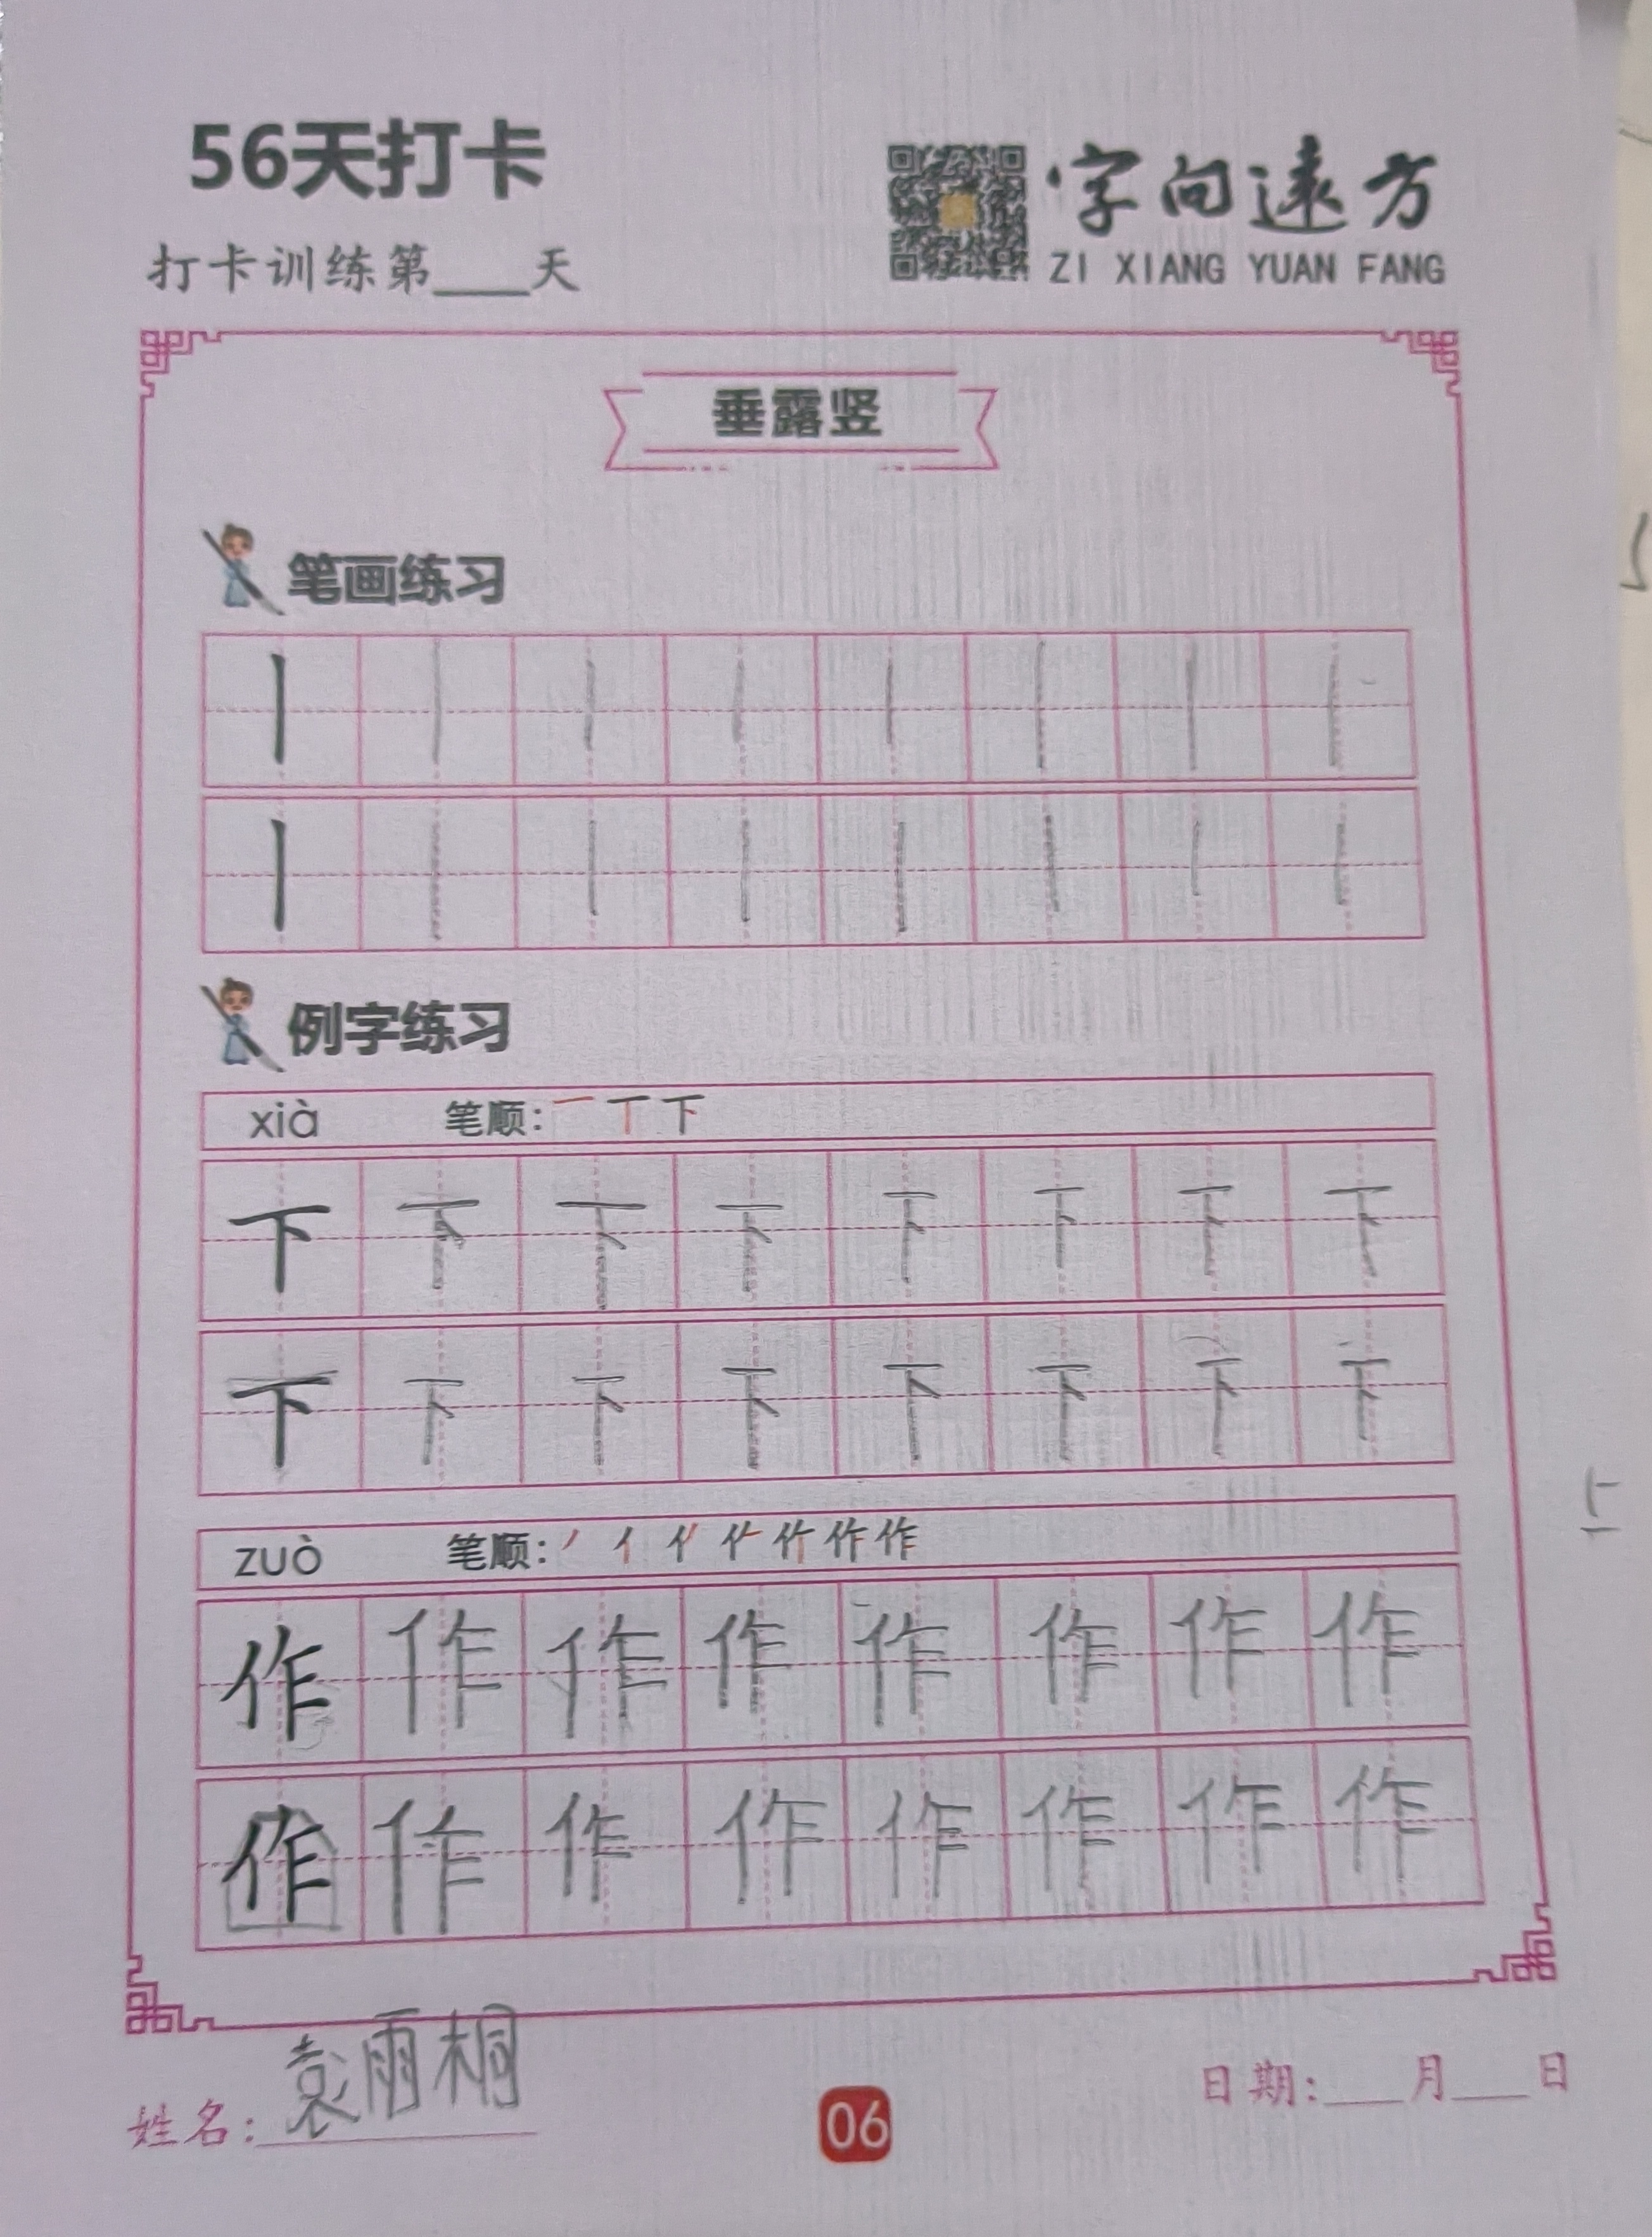 56天打卡
字向遠方
打卡训练第____天
ZI XIANG YUAN FANG
垂露竖
笔画练习
丨 丨 丨 丨 丨 丨 丨 丨
丨 丨 丨 丨 丨 丨 丨 丨
例字练习
xià 笔顺: 一 丅 下
下 下 下 下 下 下 下 下
下 下 下 下 下 下 下 下
zuò 笔顺: 丿 亻 作
作 作 作 作 作 作 作 作
作 作 作 作 作 作 作 作
姓名: 袁雨桐
06
日期:___月___日